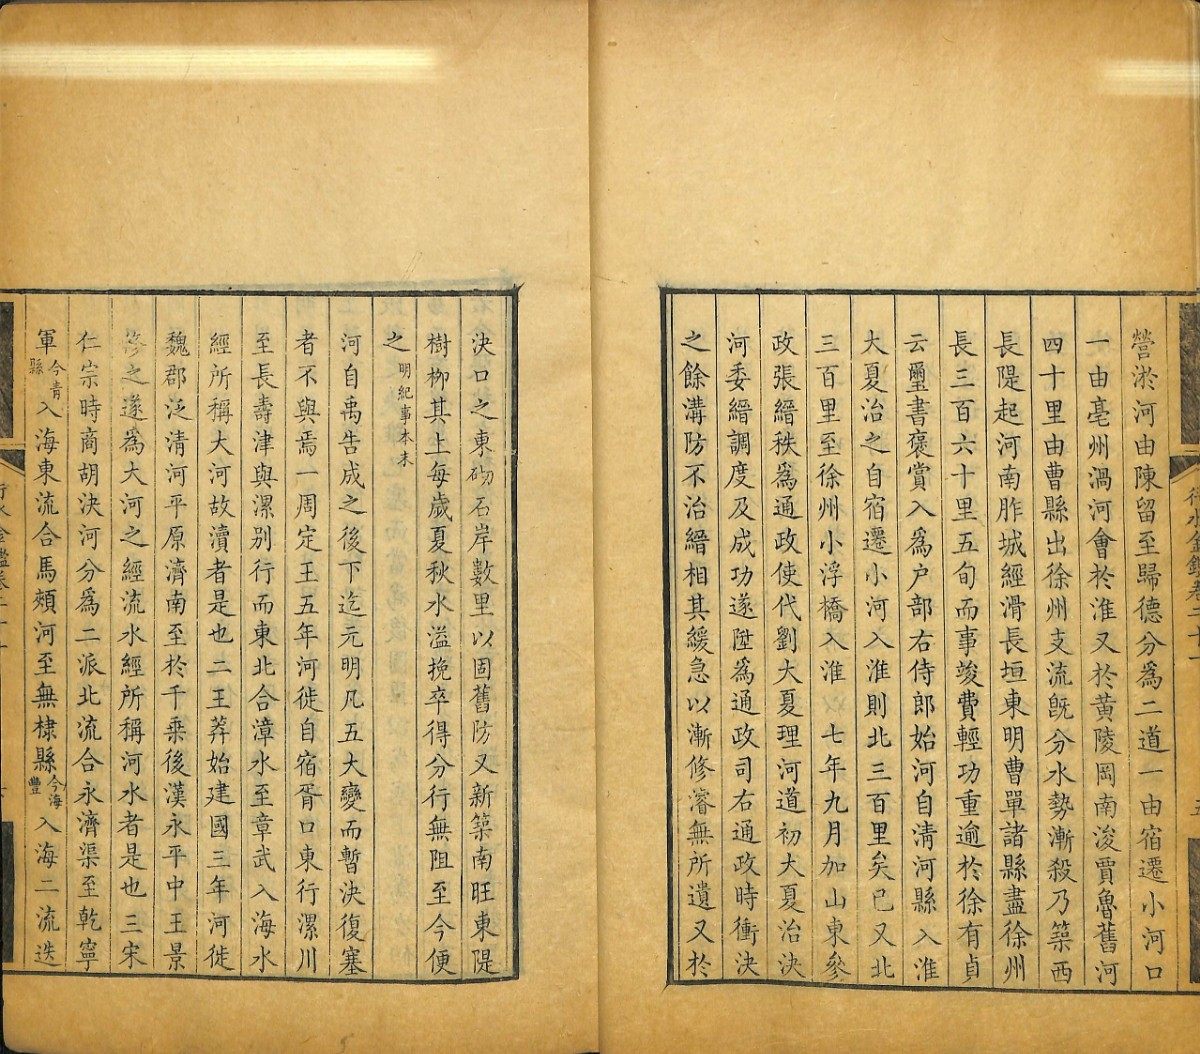 營淤河由陳留至歸德分為二道一由宿遷小河口
一由亳州渦河會於淮又於黃陵岡南浚賈魯舊河
四十里由曹縣出徐州支流旣分水勢漸殺乃築西
長隄起河南胙城經滑長垣東明曹單諸縣盡徐州
長三百六十里五旬而事竣費輕功重逾於徐有貞
云璽書褒賞入爲户部右侍郎始河自淸河縣入淮
大夏治之自宿遷小河入淮則北三百里矣已又北
三百里至徐州小浮橋入淮 七年九月加山東參
政張縉秩爲通政使代劉大夏理河道初大夏治決
河委縉調度及成功遂陞爲通政司右通政時衝決
之餘溝防不治縉相其緩急以漸修濬無所遺又於
決口之東砌石岸數里以固舊防又新築南旺東隄
樹柳其上每歲夏秋水溢挽卒得分行無阻至今便
之明紀事本末
河自禹告成之後下迄元明凡五大變而暫決復塞
者不與焉一周定王五年河徙自宿胥口東行漯川
至長壽津與漯别行而東北合漳水至章武入海水
經所稱大河故瀆者是也二王莽始建國三年河徙
魏郡泛清河平原濟南至於千乗後漢永平中王景
修之遂爲大河之經流水經所稱河水者是也三宋
仁宗時商胡決河分爲二派北流合永濟渠至乾寧
軍今青縣入海東流合馬頰河至無棣縣今海豐入海二流迭